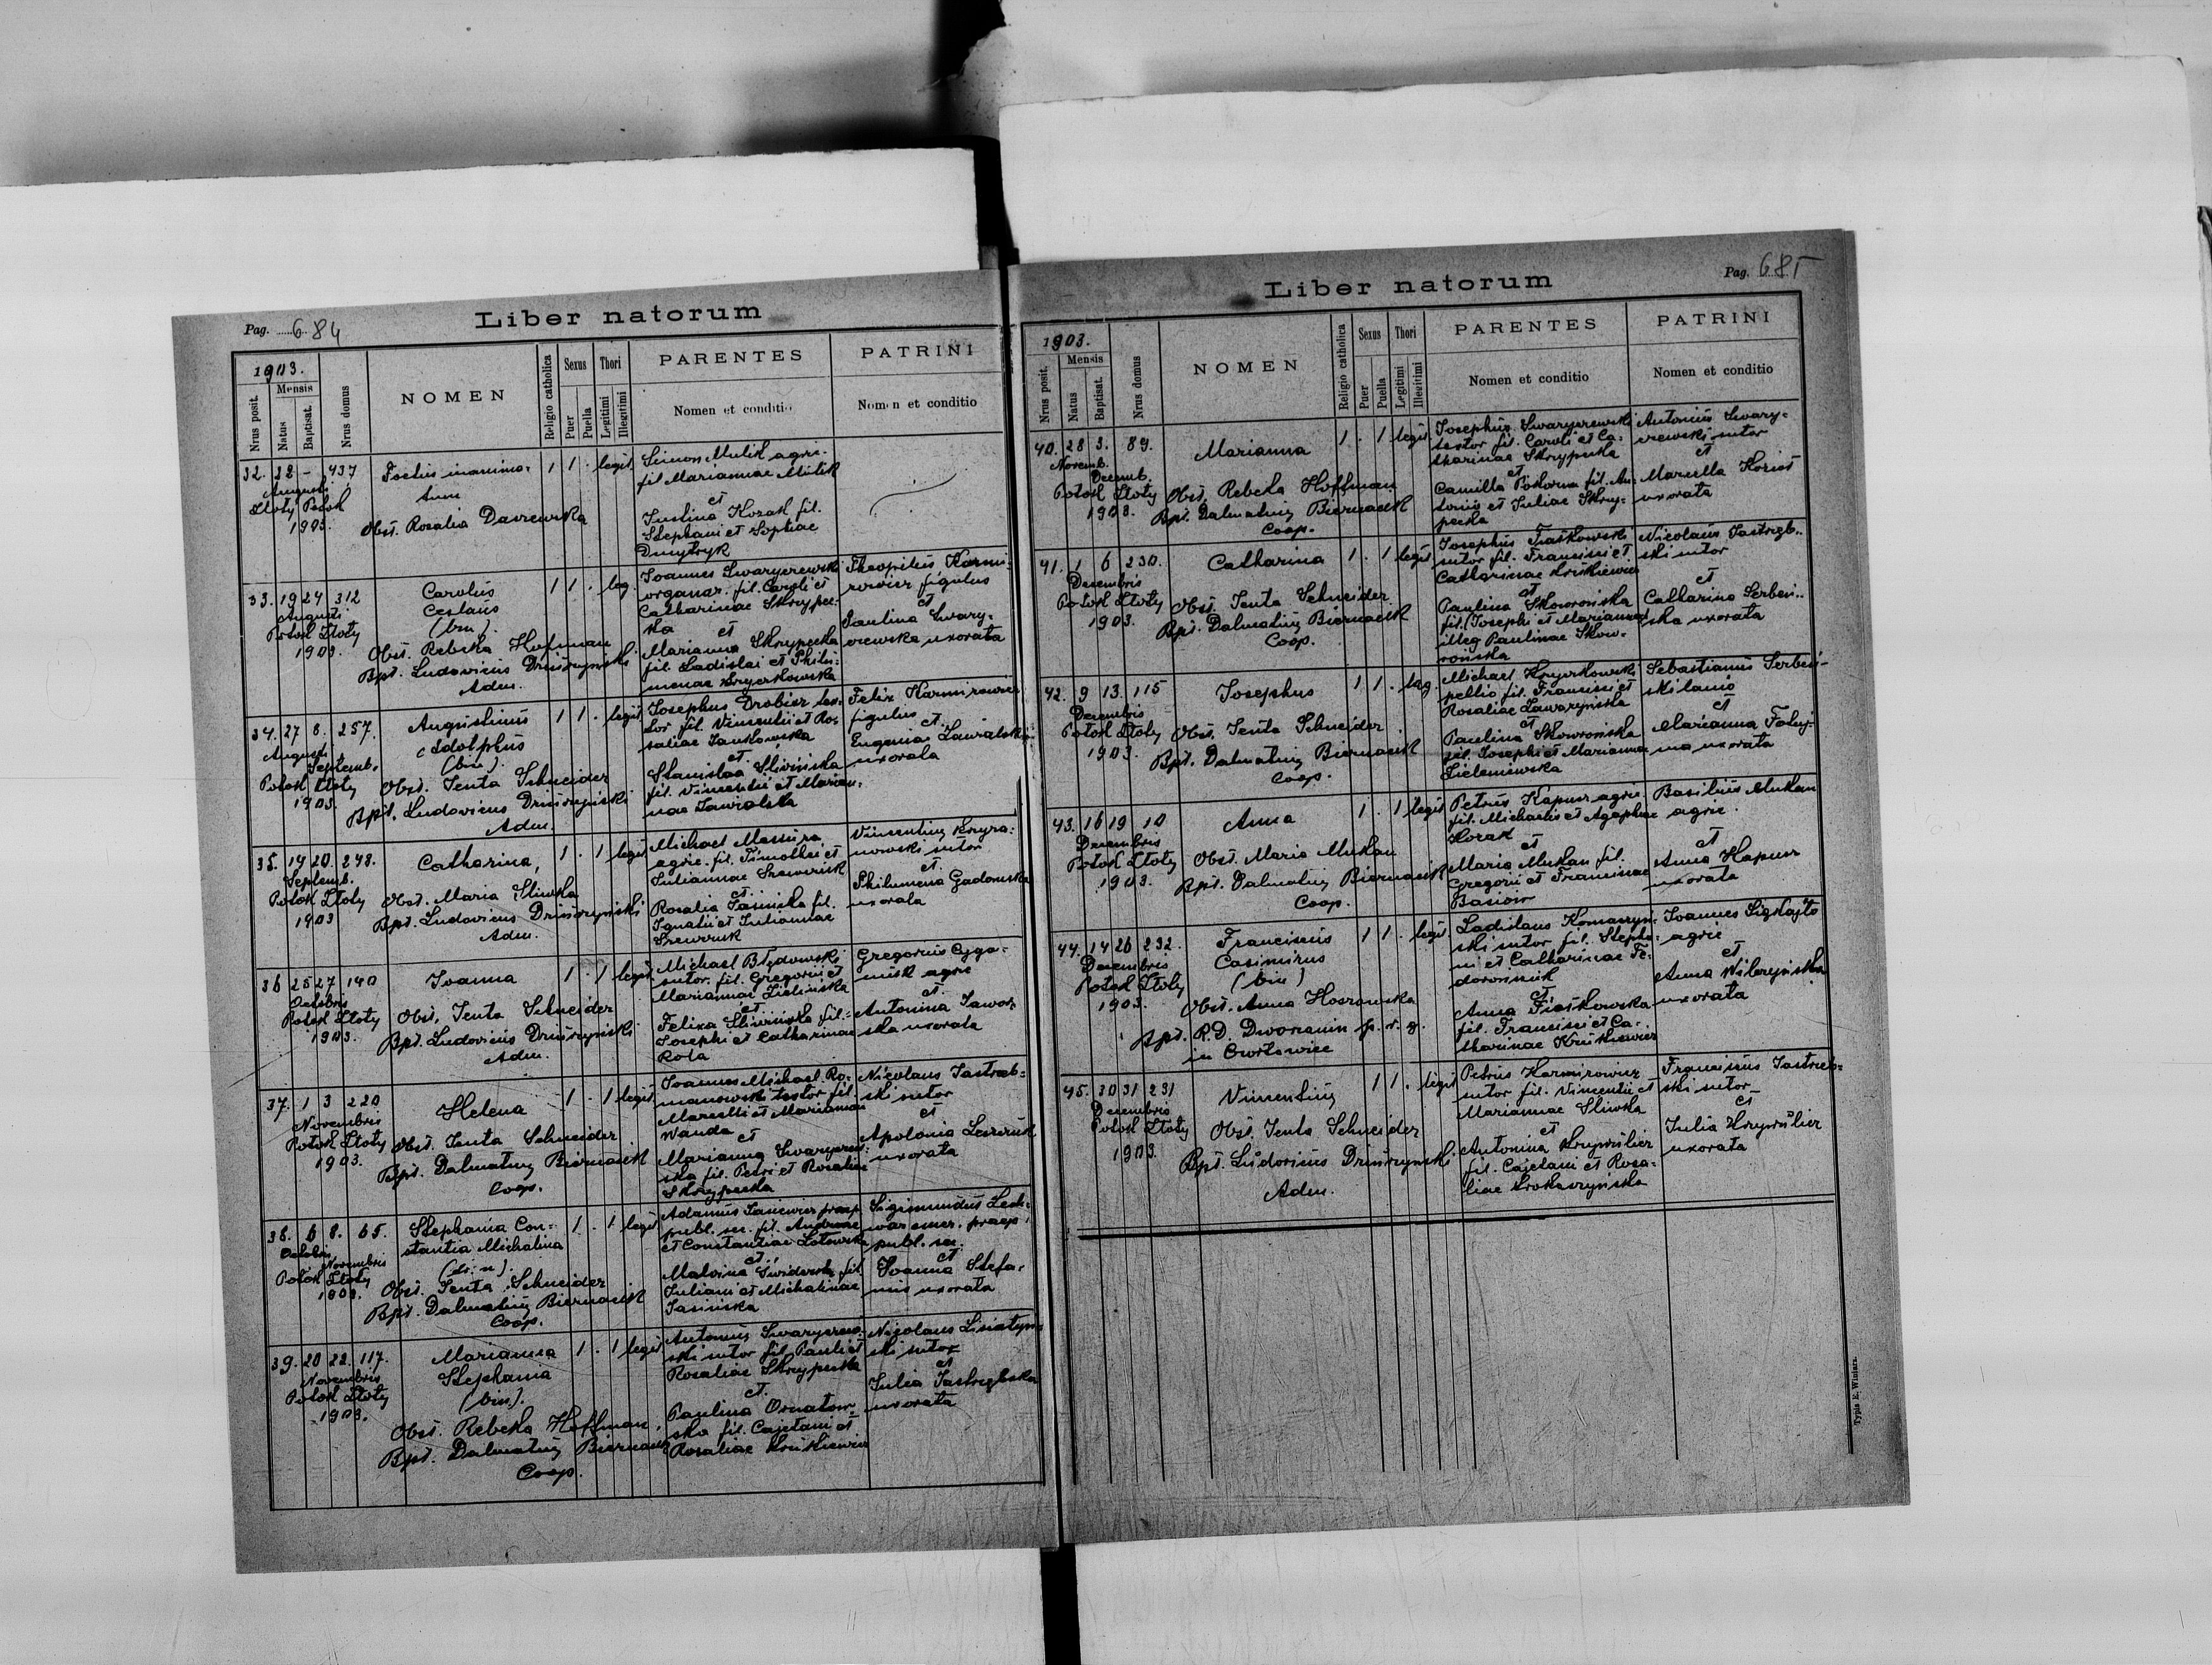 Pag. 684
Liber natorum
1903.
Nrus posit.
Mensis
Natus
Baptisat.
Nrus domus
NOMEN
Religio catholica
Sexus
Puer
Puella
Thori
Legitimi
Illegitimi
PARENTES
Nomen et conditio
PATRINI
Nomen et conditio
32. 28 - 437
Augusti
Złoty Potok
1903.
Foetus inanima-
tum
Obst. Rosalia
1 1 . legit.
Simon Mulik agric.
fil Mariannae Mulik
et
Justina Kozak fil.
Stephani et Sophiae
Dmytryk
33. 19 24 312
Augusti
Potok Złoty
1903.
Carolus
Ceslaus
(bin).
Obst. Rebeka Hofman
Bpt. Ludovicus
Adm.
1 1 . leg.
Joannes Swaryczewski
organar. fil. Caroli et
Catharinae Skrypec-
ka et
Marianna Skrypecka
fil. Ladislai et Philo-
menae
Theophilus Kazmi-
rowicz figulus
et
Paulina Swary-
czewska uxorata
34. 27 8. 257.
Augusti
Septemb.
Potok Złoty
1903.
Augustinus
Adolphus
(bin).
Obst. Jenta Schneider
Bpt. Ludovicus
Adm.
1 1 . legit.
Josephus Drobicz tex-
tor fil. Vincentii et Ro-
saliae Jankowska
et
Stanislaa Śliwińska
fil. Vincentii et Marian-
nae Zawialska
Felix Kazmirowicz
figulus
et
Eugenia
uxorata
35. 14 20. 248.
Septemb.
Potok Złoty
1903
Catharina
Obst. Maria Śliwka
Bpt. Ludovicus
Adm.
1 . 1 legit.
Michael
agric. fil. Timothei et
Juliannae Szewczuk
et
Rosalia Jasinska fil.
Ignatii et Juliannae
Szewczuk
Vincentius
sutor
et
Philumena
uxorata
36 25 27 140
Octobris
Potok Złoty
1903.
Joanna
Obst. Jenta Schneider
Bpt. Ludovicus
Adm.
1 . 1 legit.
Michael Błędowski
sutor. fil. Gregorii et
Mariannae Zielinska
et
Felixa Śliwińska fil.
Josephi et Catharinae
Rola
Gregorius Cyga-
niuk agric
et
Antonina Jawor-
ska uxorata
37. 1 3 220
Novembris
Potok Złoty
1903.
Helena
Obst. Jenta Schneider
Bpt. Dalmatius Biernacik
Coop.
1 . 1 legit.
Joannes Michael Ro-
manowski textor fil.
Marcelli et Mariannae
Wanda
et
Marianna Swaryczew-
ska fil. Petri et Rosaliae
Skrypecka
Nicolaus Jastrzeb-
ski sutor
et
Apolonia
uxorata
38. 6 8. 65.
Octobris
Novembris
Potok Złoty
1903.
Stephania Con-
stantia Michalina
Obst. Jenta Schneider
Bpt. Dalmatius Biernacik
Coop.
1 . 1 legit.
Adamus praep
publ. sec. fil. Andreae
et Constantiae
et
Malvina Świderska fil.
Juliani et Michalinae
Jasinska
Sigismundus
praep.
publ. sec.
et
Joanna
uxorata
39. 20 22. 117.
Novembris
Potok Złoty
1903.
Marianna
Stephania
(bin).
Obst. Rebeka Hoffman
Bpt. Dalmatius Biernacik
Coop.
1 . 1 legit.
Antonius Swaryczew-
ski sutor fil. Pauli et
Rosaliae Skrypecka
et.
Paulina Ornatow-
ska fil. Cajetani et
Rosaliae
Nicolaus
ski sutor
et
Julia Jastrzębska
uxorata
Liber natorum
Pag. 685
1903.
Nrus posit.
Mensis
Natus
Baptisat.
Nrus domus
NOMEN
Religio catholica
Sexus
Puer
Puella
Thori
Legitimi
Illegitimi
PARENTES
Nomen et conditio
PATRINI
Nomen et conditio
40. 28 3. 89.
Novemb.
Decemb.
Potok Złoty
1903.
Marianna
Obst. Rebeka Hoffman
Bpt. Dalmatius Biernacik
Coop.
1 . 1 legit
Josephus Swaryczewski
textor fil. Caroli et Ca-
tharinae Skrypecka
et
Camilla Pokorna fil. An-
tonii et Juliae Skry-
pecka
Antonius Swary-
czewski sutor
et
Marcella
uxorata
41. 1 6 230.
Decembris
Potok Złoty
1903.
Catharina
Obst. Jenta Schneider
Bpt. Dalmatius Biernacik
Coop.
1 . 1 legit.
Josephus
sutor fil. Francisci et
Catharinae
et
Paulina Skowrońska
fil. (Josephi et Mariannae)
illeg Paulinae Skow-
rońska
Nicolaus Jastrzęb-
ski sutor
et
Catharina Serbeń-
ska uxorata
42. 9 13. 115
Decembris
Potok Złoty
1903.
Josephus
Obst. Jenta Schneider
Bpt. Dalmatius Biernacik
Coop.
1 1 . leg.
Michael
pellio fil. Francisci et
Rosaliae
et
Paulina Skowrońska
fil. Josephi et Mariannae
Zieleniewska
Sebastianus Serbeń-
ski lanio
et
Marianna
uxorata
43. 16 19 10
Decembris
Potok Złoty
1903.
Anna
Obst. Maria Mukan
Bpt. Dalmatius Biernacik
Coop.
1 . 1 legit.
Petrus Kapusz agric.
fil. Michaelis et Agaphiae
Kozak
et
Maria Mukan fil.
Gregorii et Franciscae
Basiow
Basilius Mukan
agric.
et
Anna Kapusz
uxorata
44. 14 26 232.
Decembris
Potok Złoty
1903.
Franciscus
Casimirus
(bin)
Obst. Anna
Bpt. R.D. Dworzanin
in
1 1 . legit.
Ladislaus
ski sutor fil. Stepha-
ni et Catharinae Fe-
et
Anna
fil. Francisci et Ca-
tharinae
Joannes
agric
et
Anna Wilczyńska
uxorata
45. 30 31 231
Decembris
Potok Złoty
1903.
Vincentius
Obst. Jenta Schneider
Bpt. Ludovicus
Adm.
1 1 . legit
Petrus Kazmirowicz
sutor fil. Vincentii et
Mariannae Śliwka
et
Antonina
fil. Cajetani et Rosa-
liae
Franciscus Jastrzeb-
ski sutor
et
Julia
uxorata
Typis E. Winiarz.